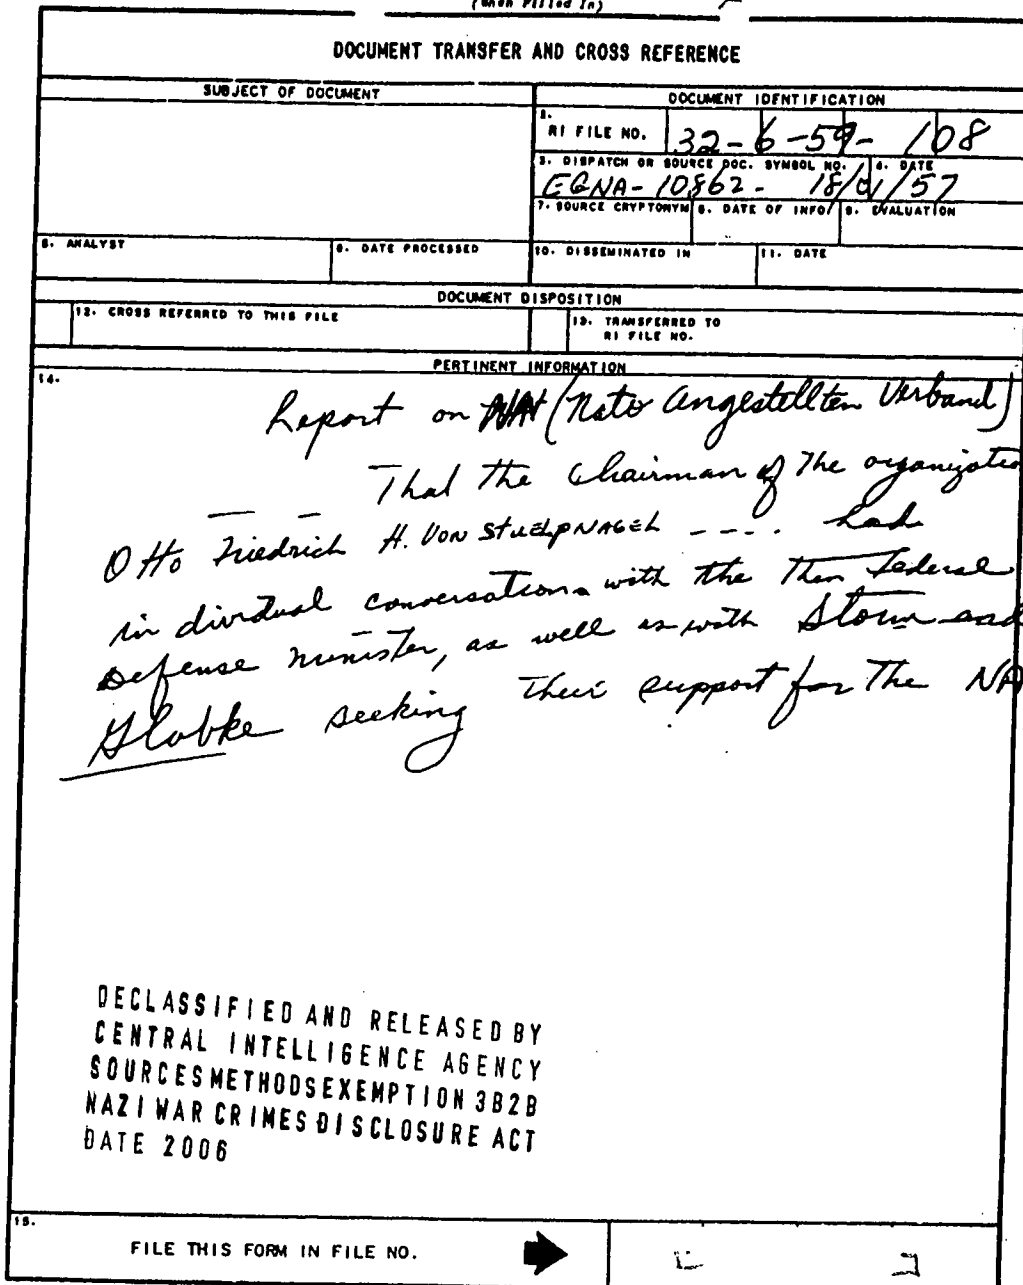 (When Filled In)
DOCUMENT TRANSFER AND CROSS REFERENCE
SUBJECT OF DOCUMENT
DOCUMENT IDENTIFICATION
RI FILE NO. 32-6-59-108
3. DISPATCH OR SOURCE DOC. SYMBOL NO. 4. DATE
EGNA-10862- 18/01/57
7. SOURCE CRYPTONYM 8. DATE OF INFO 9. EVALUATION
5. ANALYST
6. DATE PROCESSED
10. DISSEMINATED IN
11. DATE
DOCUMENT DISPOSITION
12. CROSS REFERRED TO THIS FILE
13. TRANSFERRED TO
RI FILE NO.
PERTINENT INFORMATION
14.
Report on (Nato Angestellten Verband)
— — That the Chairman of The organizatio
Otto Friedrich H. VON STUELPNAGEL ---- had
individual conversations with the then Federal
Defense minister, as well as with Storm and
Globke seeking their support for The NA
DECLASSIFIED AND RELEASED BY
CENTRAL INTELLIGENCE AGENCY
SOURCES METHODS EXEMPTION 3B2B
NAZI WAR CRIMES DISCLOSURE ACT
DATE 2006
15.
FILE THIS FORM IN FILE NO.